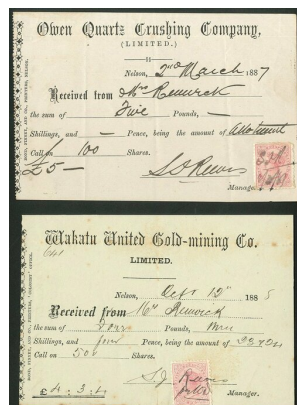 Owen Quartz Crushing Company,
(LIMITED.)
Nelson, 2nd March 1887
Received from Mrs Renwick
the sum of Five Pounds, —
Shillings, and — Pence, being the amount of Allotment
Call on 100 Shares.
£5 —
Manager.
Wakatu United Gold-mining Co.
LIMITED.
Nelson, Oct 12" 1885
Received from Mrs Renwick
the sum of Four Pounds, three
Shillings, and four Pence, being the amount of
Call on 500 Shares.
£4 : 3 : 4
Manager.